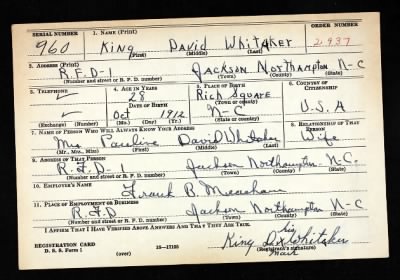 SERIAL NUMBER
1. NAME (Print)
ORDER NUMBER
960
King David Whitaker
2,937
(First) (Middle) (Last)
2. ADDRESS (Print)
R.F.D-1 Jackson Northampton N-C
(Number and street or R. F. D. number) (Town) (County) (State)
3. TELEPHONE
4. AGE IN YEARS
28
5. PLACE OF BIRTH
Rich Square
6. COUNTRY OF CITIZENSHIP
DATE OF BIRTH
(Town or county)
Oct 1912
N-C
U.S.A
(Exchange) (Number)
(Mo.) (Day) (Yr.)
(State or country)
7. NAME OF PERSON WHO WILL ALWAYS KNOW YOUR ADDRESS
8. RELATIONSHIP OF THAT PERSON
Mrs Pauline David Whitaker
Wife
(Mr., Mrs., Miss) (First) (Middle) (Last)
9. ADDRESS OF THAT PERSON
R.F.D-1 Jackson Northampton N-C.
(Number and street or R. F. D. number) (Town) (County) (State)
10. EMPLOYER'S NAME
Frank B. Meacham
11. PLACE OF EMPLOYMENT OR BUSINESS
R.F.D Jackson Northampton N-C
(Number and street or R. F. D. number) (Town) (County) (State)
I AFFIRM THAT I HAVE VERIFIED ABOVE ANSWERS AND THAT THEY ARE TRUE.
his
King D X Whitaker
mark
REGISTRATION CARD
D. S. S. Form 1
(over)
(Registrant's signature)